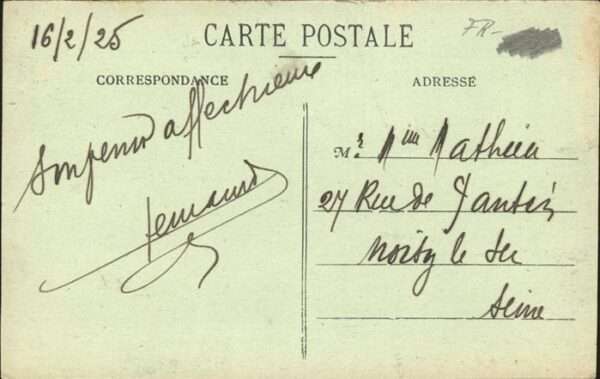 16/2/25
CARTE POSTALE
FR-
CORRESPONDANCE
ADRESSE
affectueux
M. r Mme Mathieu
27 Rue de Pantin
Noisy le Sec
Seine